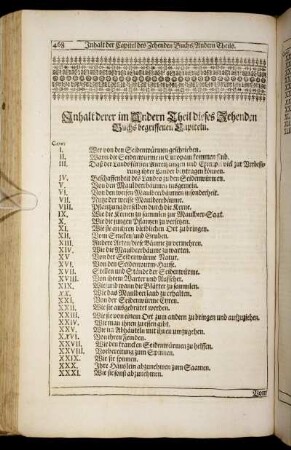 468 Inhalt der Capitel des Zehenden Buchs Andern Theils.
Inhalt derer im Andern Theil dieses Zehenden
Buchs begriffenen Capiteln.
I. Wer von den Seidenwürmen geschrieben.
II. Wann die Seidenwürme in Europam kommen sind.
III. Daß der Landsfürsten
IV. Beschaffenheit des Landes zu den Seidenwürmen.
V. Von den Maulbeerbäumen insgemein.
VI. Von den weissen Maulbeerbäumen in sonderheit.
VII. Nutze der weisse Maulbeerbäume.
VIII. Pflantzung derselben durch die Kerne.
IX. Wie die Kernen zu sammlen zur Maulbeer-Saat.
X. Wie die jungen Pflantzen zu versetzen.
XI. Wie sie an ihren bleiblichen Ort zu bringen.
XII. Vom Stucken und Gruben.
XIII. Andere Arten diese Bäume zu vermehren.
XIV. Wie die Maulbeerbäume zu warten.
XV. Von der Seidenwürme Natur.
XVI. Von des Seidenwurm-Hause.
XVII. Stellen und Stände der Seidenwürme.
XVIII. Von ihrem Warter und Aufseher.
XIX. Wie und wann die Blätter zu sammlen.
XX. Wie das Maulbeerlaub zu erhalten.
XXI. Von der Seidenwürme Eyren.
XXII. Wie sie ausgebrütet werden.
XXIII. Wie sie von einem Ort zum andern zu bringen und aufzuziehen.
XXIV. Wie man ihnen zuessen gibt.
XXV. Wie in Abhäuteln mit ihnen umzugehen.
XXVI. Von ihren Feinden.
XXVII. Wie den krancken Seidenwürmen zu helffen.
XXVIII. Vorbereitung zum Spinnen.
XXIX. Wie sie spinnen.
XXX. Ihre Häuslein abzunehmen zum Saamen.
XXXI. Wie sie sonst abzunehmen.